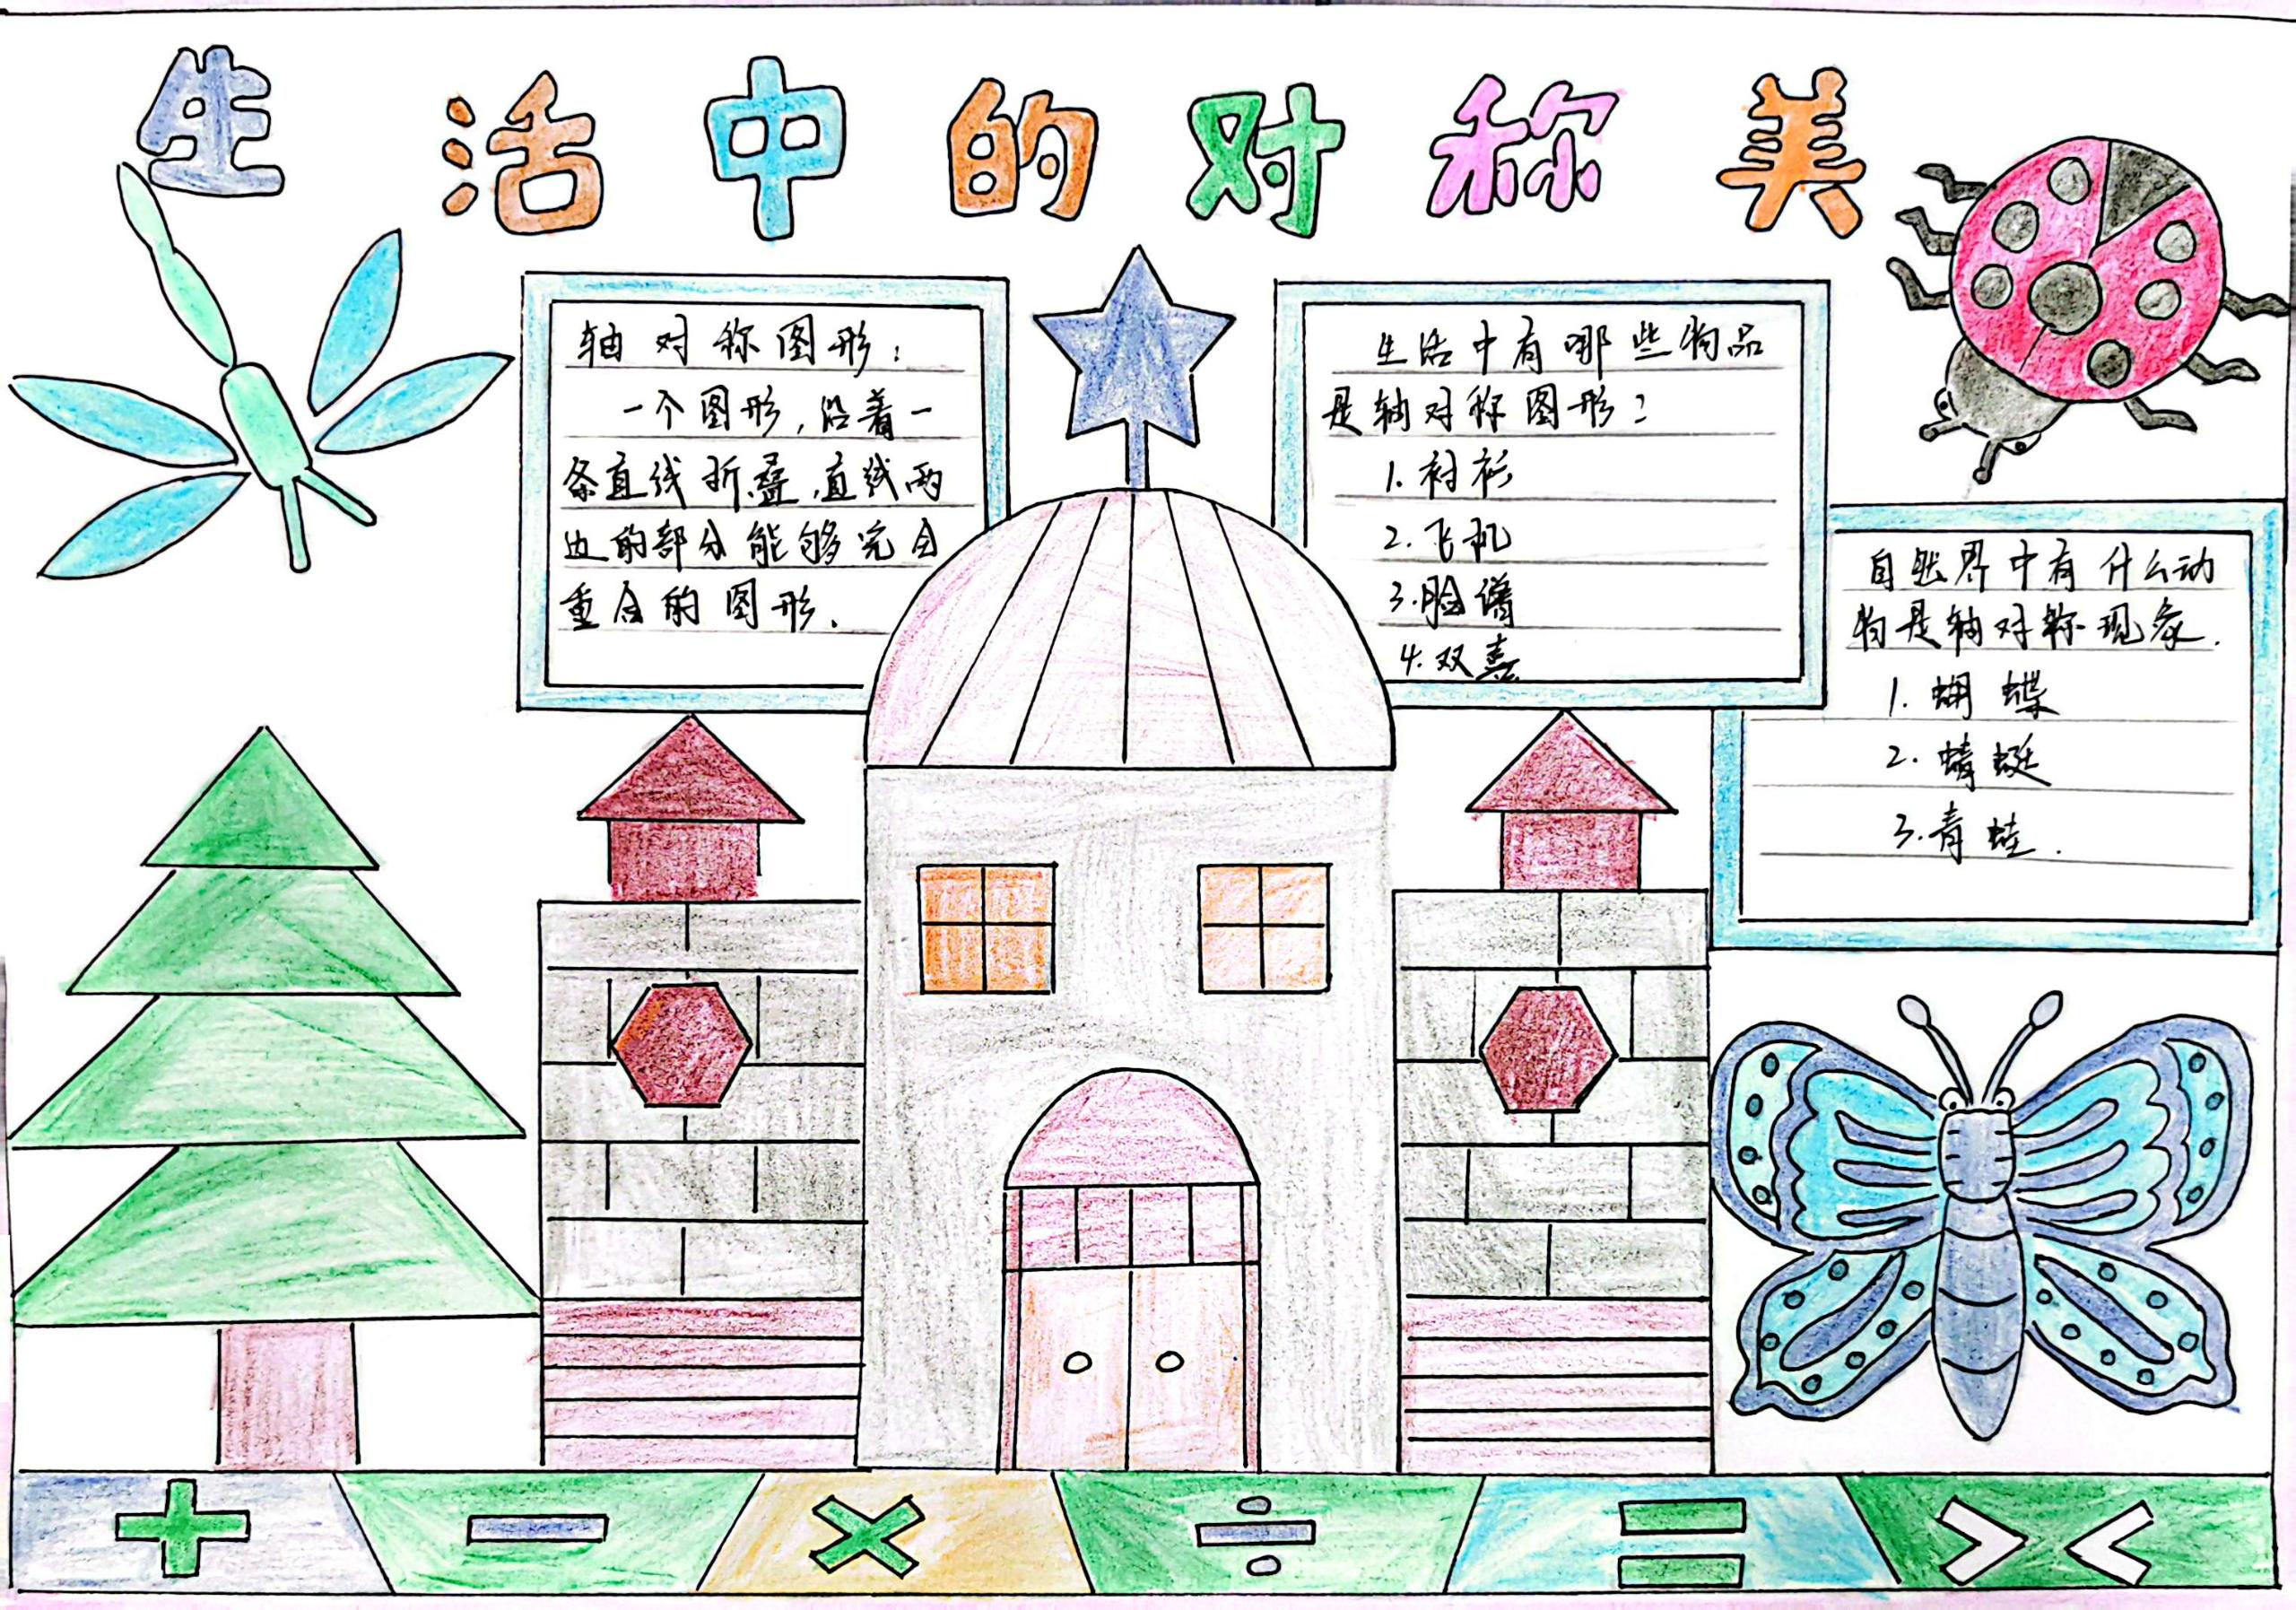 生活中的对称美
轴对称图形：
一个图形，沿着一
条直线折叠，直线两
边的部分能够完全
重合的图形．
生活中有哪些物品
是轴对称图形？
1.衬衫
2.飞机
3.脸谱
4.双喜
自然界中有什么动
物是轴对称现象．
1.蝴蝶
2.蜻蜓
3.青蛙．
+ − × ÷ = > <